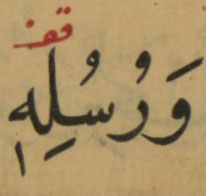 قف
وَرُسُلِهٖ